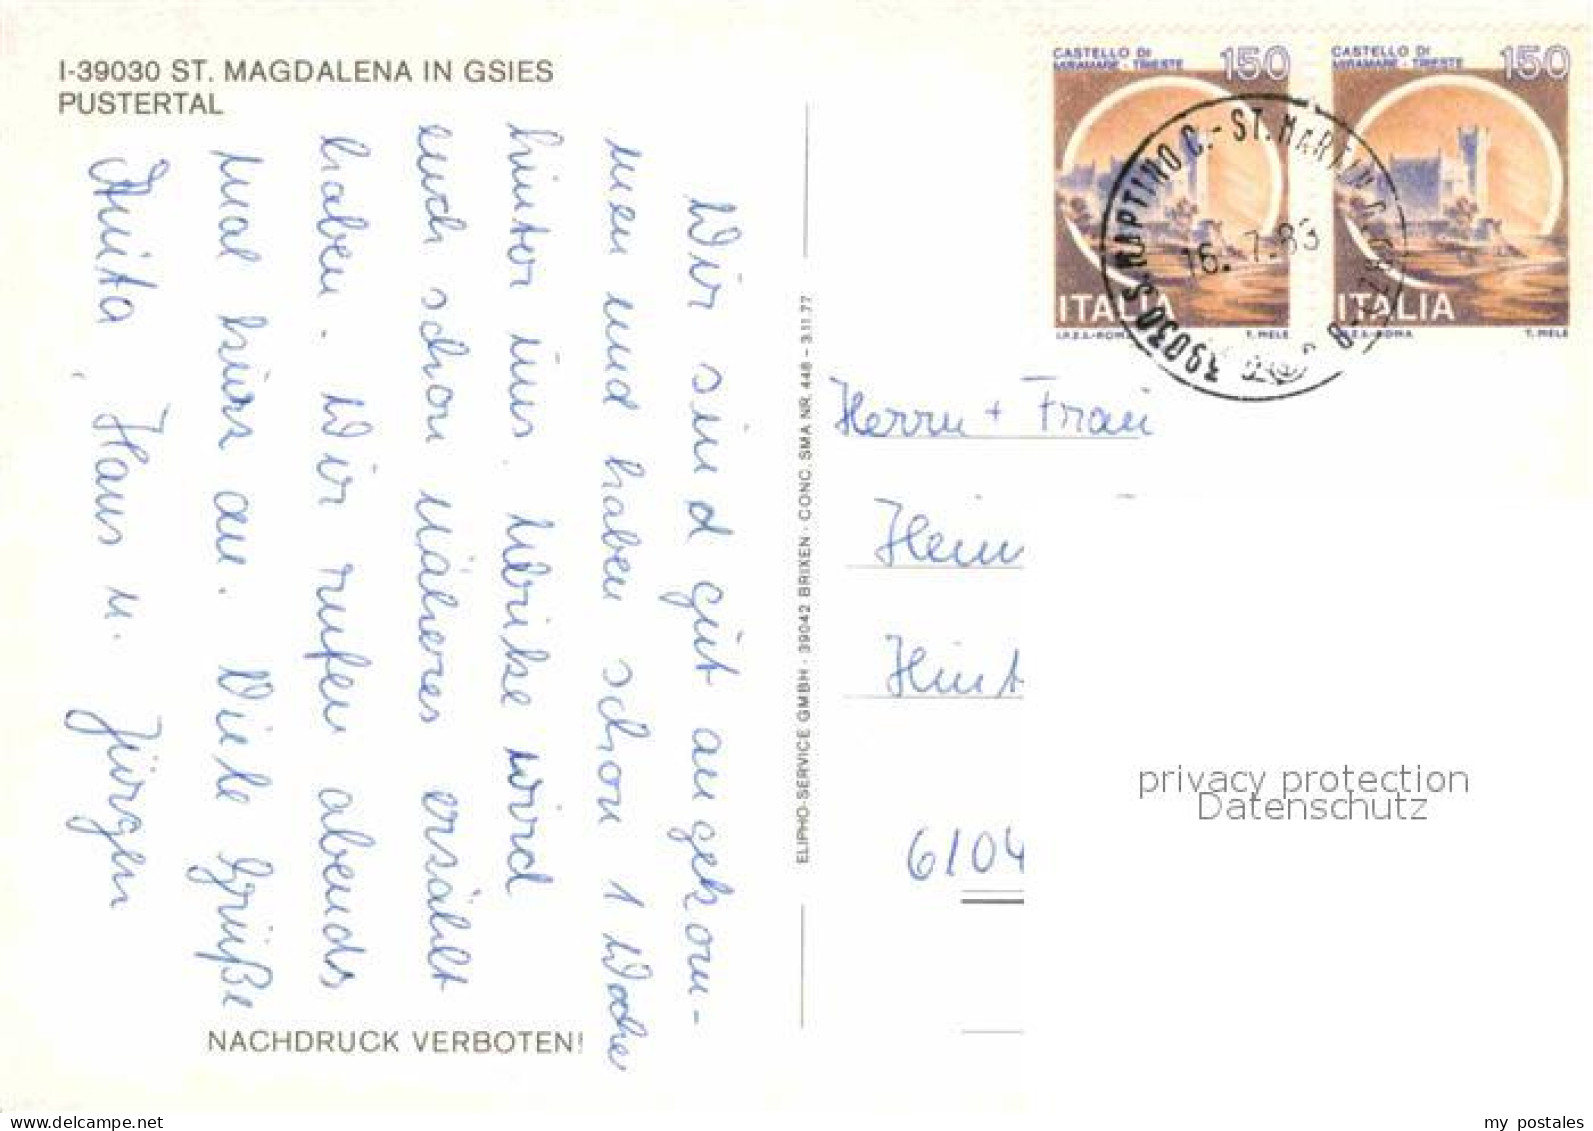 I-39030 ST. MAGDALENA IN GSIES
PUSTERTAL
Wir sind gut angekom-
men und haben schon 1 Woche
hinter uns. Ulrike wird
euch schon näheres erzählt
haben. Wir rufen abends
mal kurz an. Viele Grüße
Anita, Hans u. Jürgen
NACHDRUCK VERBOTEN!
ELIPHO-SERVICE GMBH - 39042 BRIXEN - CONC. SMA NR. 448 - 3.11.77
CASTELLO DI
MIRAMARE - TRIESTE
150
ITALIA
I.P.Z.S.-ROMA T. MIELE
CASTELLO DI
MIRAMARE - TRIESTE
150
ITALIA
I.P.Z.S.-ROMA T. MIELE
39030 S. MARTINO C. - ST. MARTIN
16.7.83
Herrn + Frau
Hein
Hint
6104
privacy protection
Datenschutz
my postales